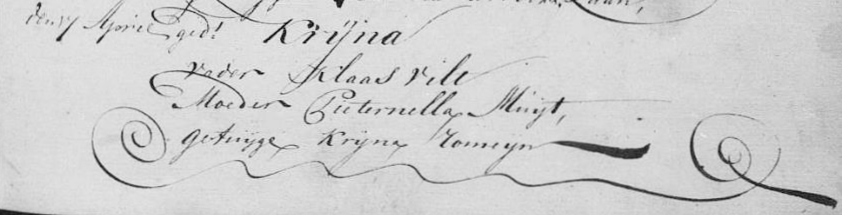 den 17 April ged.t Krijna
vader Klaas Vile
Moeder Pieternella Muyt,
getuyge Kryna Romeyn